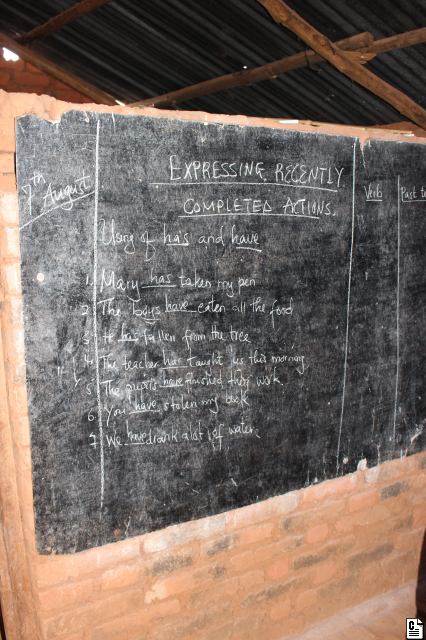 7th August
EXPRESSING RECENTLY
COMPLETED ACTIONS.
Using of has and have
1. Mary has taken my pen
2. The boys have eaten all the food
3. He has fallen from the tree
4. The teacher has taught us this morning
5. The pupils have finished their work.
6. You have stolen my book
7. We have drank alot of water.
Verb
Past te